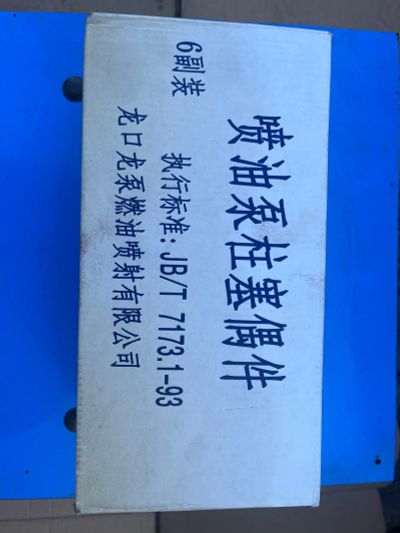 喷油泵柱塞偶件
6副装 执行标准：JB/T 7173.1-93
龙口龙泵燃油喷射有限公司